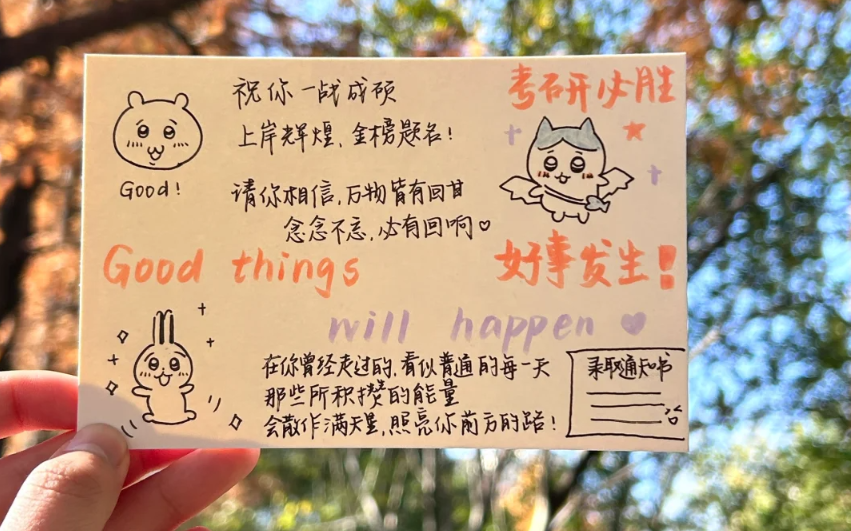 祝你一战成硕
上岸辉煌,金榜题名!
考研必胜
Good!
请你相信,万物皆有回甘
念念不忘,必有回响♡
Good things
好事发生!
will happen
在你曾经走过的,看似普通的每一天
那些所积攒的能量
会散作满天星,照亮你前方的路!
录取通知书